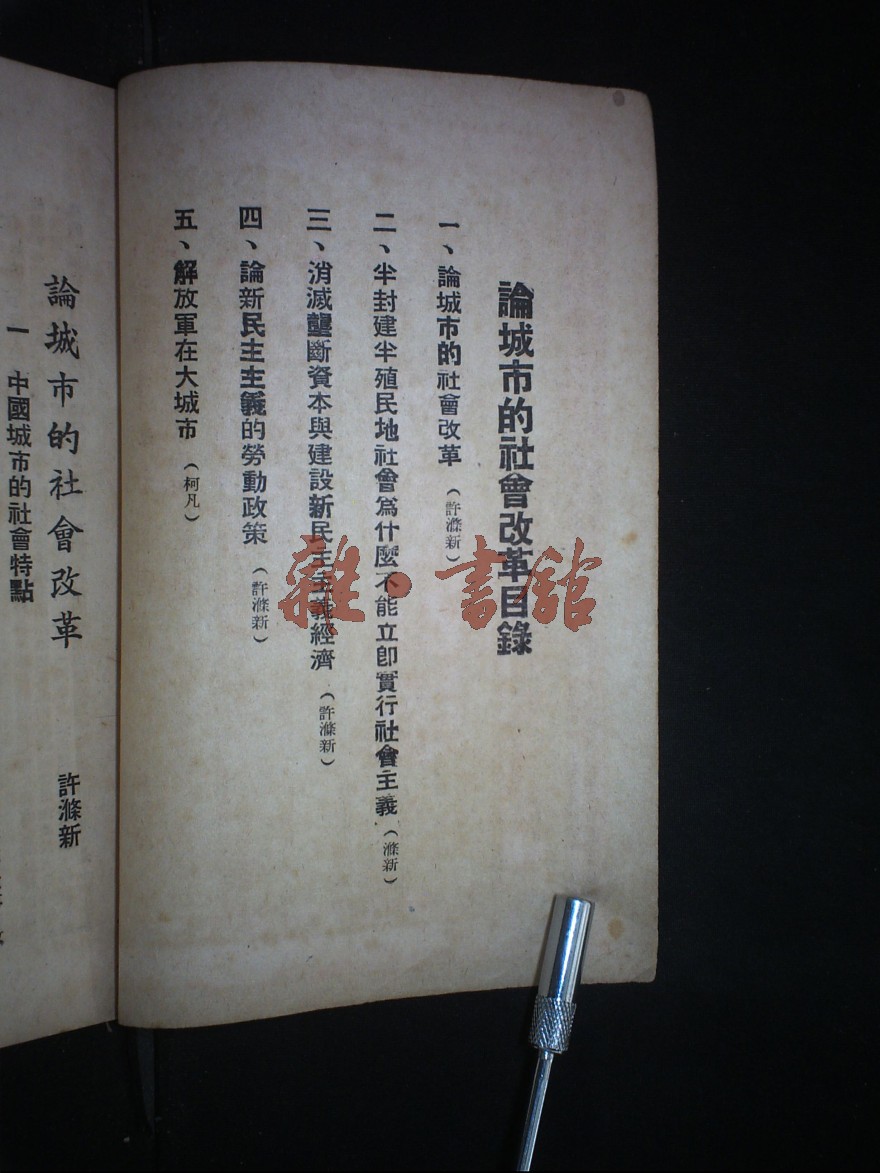 論城市的社會改革目錄
一、論城市的社會改革（許滌新）
二、半封建半殖民地社會爲什麼不能立卽實行社會主義（滌新）
三、消滅壟斷資本與建設新民主主義經濟（許滌新）
四、論新民主主義的勞動政策（許滌新）
五、解放軍在大城市（柯凡）
論城市的社會改革 許滌新
一 中國城市的社會特點
雜·書館